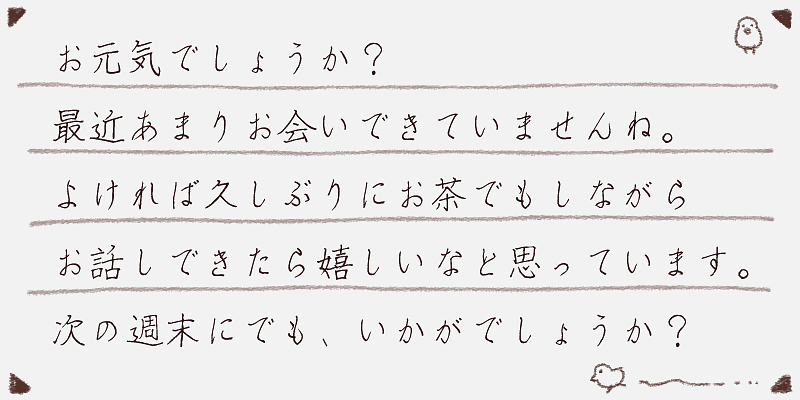 お元気でしょうか?
最近あまりお会いできていませんね。
よければ久しぶりにお茶でもしながら
お話しできたら嬉しいなと思っています。
次の週末にでも、いかがでしょうか?